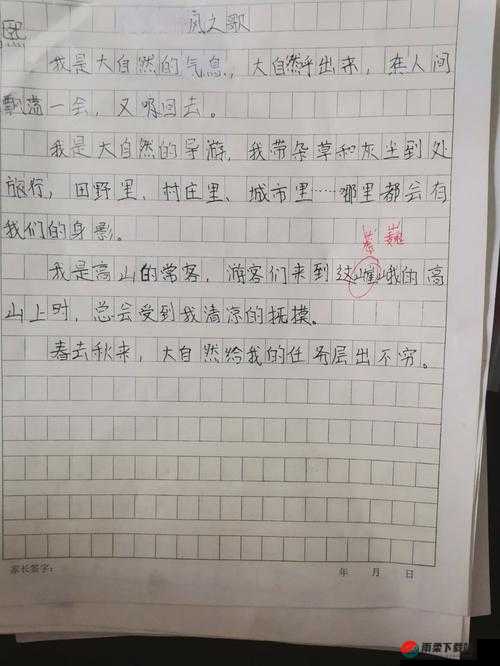 风之歌
我是大自然的气息，大自然呼出来，在人间
飘荡一会，又吸回去。
我是大自然的导游，我带杂草和灰尘到处
旅行，田野里、村庄里、城市里……哪里都会有
我们的身影。
巍
我是高山的常客，游客们来到这巍峨的高
山上时，总会受到我清凉的抚摸。
春去秋来，大自然给我的任务层出不穷。
家长签字： 年 月 日
雨柔下载站